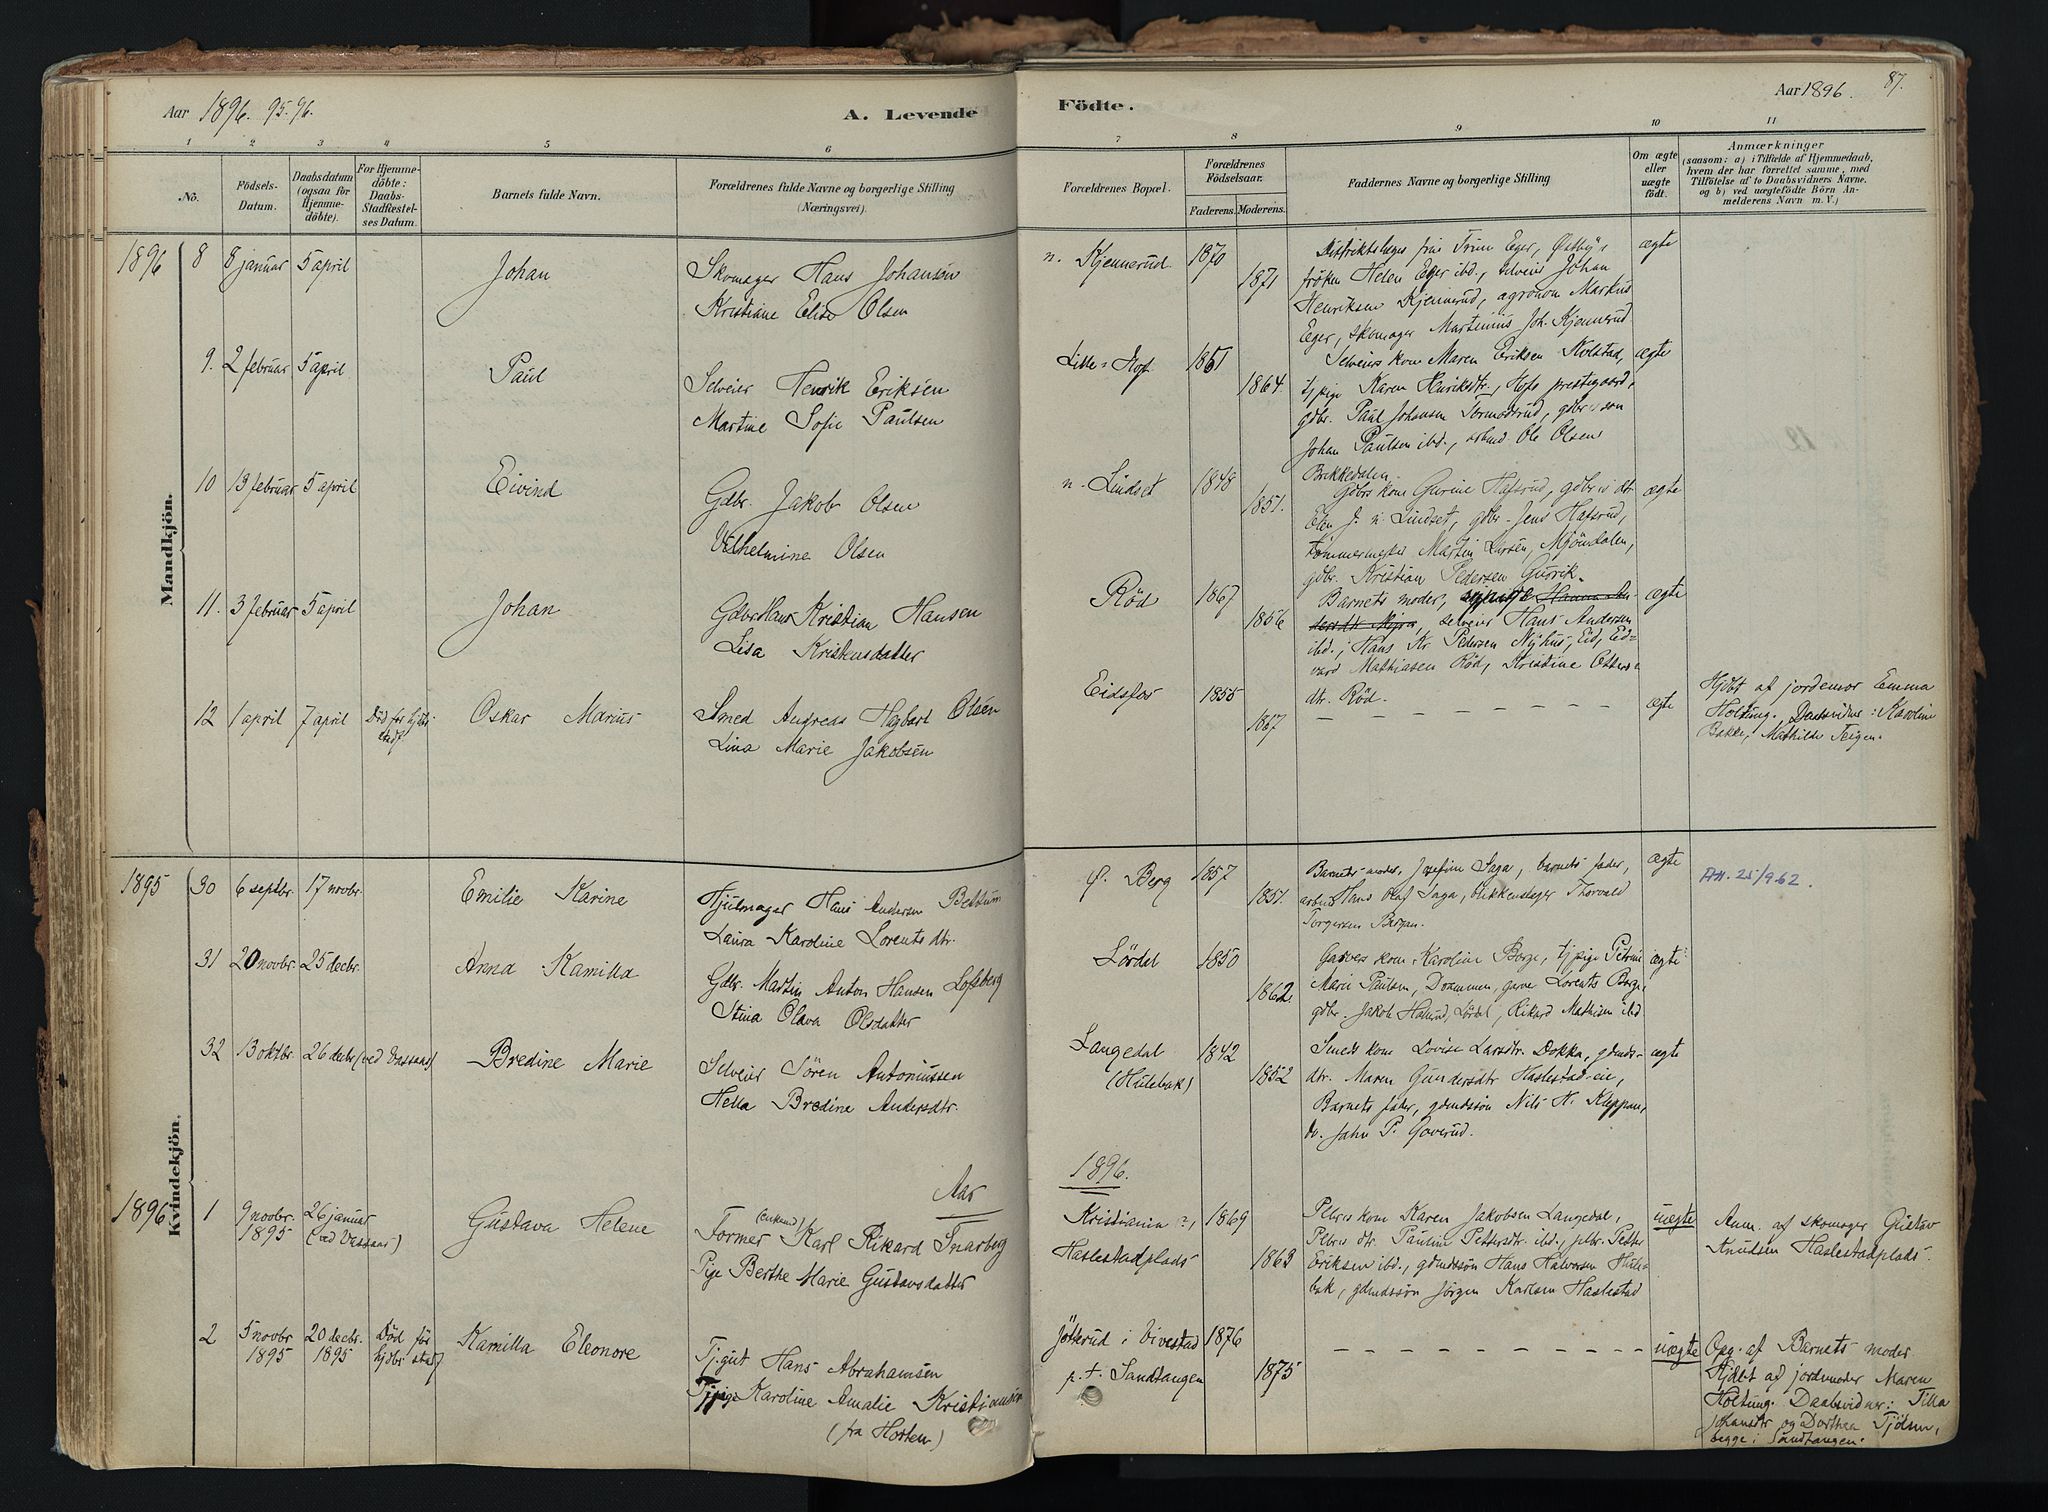 Aar 1896. 95. 96.
A. Levende
Födte.
Aar 1896.
87.
1 2 3 4 5 6 7 8 9 10 11
No.
Födsels-
Datum.
Daabsdatum
(ogsaa for
Hjemme-
döbte).
For Hjemme-
döbte:
Daabs-
Stadfæstel-
ses Datum.
Barnets fulde Navn.
Forældrenes fulde Navne og borgerlige Stilling
(Næringsvei).
Forældrenes Bopæl.
Forældrenes
Födselsaar.
Faderens. Moderens.
Faddernes Navne og borgerlige Stilling
Om ægte
eller
uægte
födt.
Anmærkninger
(saasom: a) i Tilfælde af Hjemmedaab,
hvem der har forrettet samme, med
Tilföielse af to Daabsvidners Navne.
og b) ved uægtefödte Börn An-
melderens Navn m. V.)
Mandkjön.
1896 8 8 januar 5 april Johan
Skomager Hans Johansen
Kristiane Elise Olsen
n. Kjennerud. 1870
1871
Distriktslæges frue Trine Eger, Østby,
fröken Helen Eger ibd., selveier Johan
Henriksen Kjennerud, agronom Markus
Eger, skomager Martinius Joh. Kjennerud.
ægte
9. 2 februar 5 april Paul
Selveier Henrik Eriksen
Martine Sofie Paulsen
Lille-Hof. 1861
1864.
Selveiers kone Maren Eriksen Kolstad,
tjpige Karen Henriksdtr., Hofs prestegaard,
gdbr. Paul Johansen Tormodsrud, gdbr.s søn
Johan Paulsen ibd., arbmd. Ole Olsen
Bakkedalen.
ægte
10 13 februar 5 april Eivind
Gdbr. Jakob Olsen
Vilhelmine Olsen
n. Lindset 1848
1851.
Gdbrs kone Gurine Hafsrud, gdbr.s dtr
Elen J. n. Lindset, gdbr. Jens Hafsrud,
tømmermester Martin Larsen, Mjöndalen,
gdbr. Kristian Pedersen Gusrik.
ægte
11. 3 februar 5 april Johan
Gdbr. Hans Kristian Hansen
Lisa Kristensdatter
Röd 1867
1856
Barnets moder, selveier Hans Andersen
ibd., Hans Kr. Pedersen Nyhus, Eid, Ed-
vard Mathiasen Röd, Kristine Otters-
dtr. Röd.
ægte
12 1 april 7 april Död for hjdbs
stadf.
Oskar Marius
Smed Andreas Hagbart Olsen
Lina Marie Jakobsen
Eidsfos 1855
1867
ægte
Hjdbt af jordemor Emma
Holtung. Daabsvidner: Karoline
Bakke, Mathilde Teigen.
Kvindekjön.
1895 30 6 septbr. 17 novbr. Emilie Karine
Hjulmager Hans Andersen Bettum
Laura Karoline Lorentsdtr.
Ø. Berg 1857
1851.
Barnets moder, Josefine Saga, barnets fader,
arbmd Hans Olaf Saga, blikkenslager Thorvald
Torgersen Bergan.
ægte
25/9.62.
31 20 novbr. 25 decbr. Anna Kamilla
Gdbr. Martin Anton Hansen Lofsberg
Stina Olava Olsdatter
Lördal 1850
1862.
Garvers kone Karoline Borge, tjpige Petrine
Marie Paulsen, Drammen, garver Lorents Borge,
gdbr. Jakob Halvrud, Lördal, Rikard Mathisen ibd
ægte
32 13 oktbr. 26 decbr (ved Vassaas) Bredine Marie
Selveier Sören Antoniussen
Hella Bredine Andersdtr.
Langedal
(Hulebak) 1842
1852
Smeds kone Lovise Larsdtr. Dokka, gdmds-
dtr. Maren Gundersdtr Haslestad-eie,
Barnets fader, gdmdssön Nils H. Kleppan,
do. John P. Goverud.
ægte
Aar 1896.
1896 1 9 novbr.
1895
26 januar
(ved Vassaas)
Gustava Helene
Former (enkemd) Karl Rikard Snarberg
Pige Berthe Marie Gustavsdatter
Kristiania ?,
Haslestadplads 1869
1863
Plbrs kone Karen Jakobsen Langedal,
Plbrs dtr. Pauline Pettersdtr. ibd., plbr. Petter
Eriksen ibd., gdmdssön Hans Halvorsen Hule-
bak, gdmdssön Jörgen Karlsen Haslestad
uægte
Anm. af skomager Gustav
Knudsen Haslestadplads.
2 5 novbr
1895
20 decbr.
1895
Död för
hjdbs stadf
Kamilla Eleonore
Tj.gut Hans Abrahamsen
Tjpige Karoline Amalie Kristiansen
(fra Horten)
i Vivestad
p.t. Sandtangen 1876
1875
uægte
Opg. af Barnets moder.
Hjdbt ad jordemoder Maren
Holtung. Daabsvidner: Tilla
Johansdtr og Dorthea Tjölsen,
begge i Sandtangen.